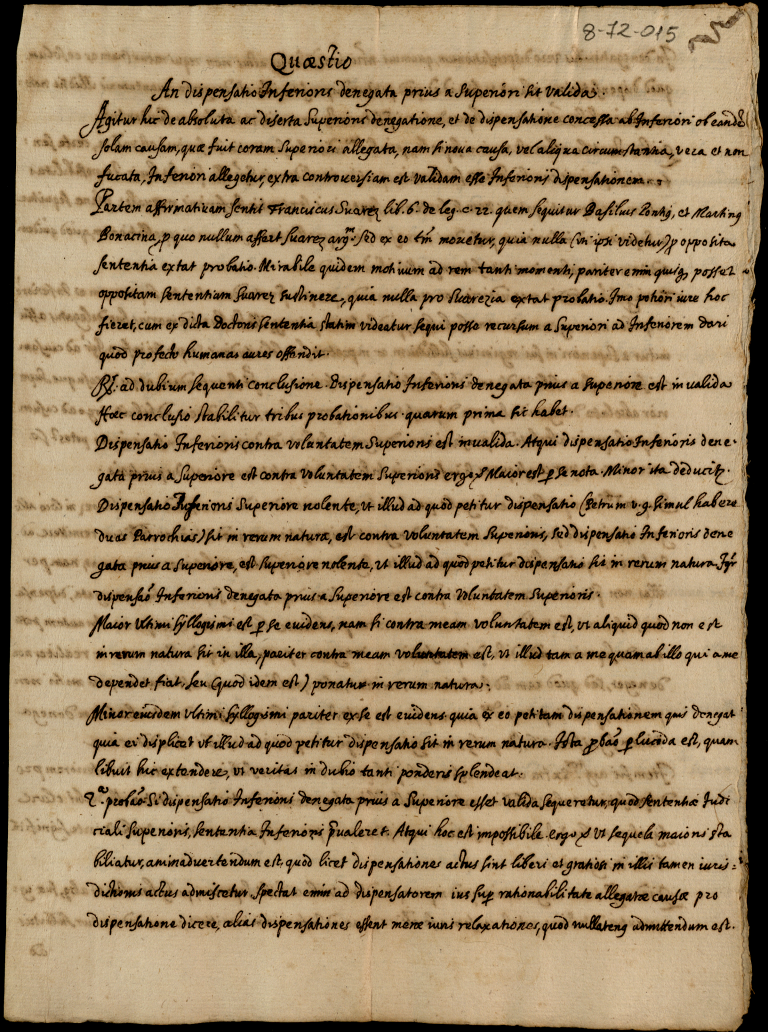 8-72-015
Quæstio
An dispensatio Inferioris denegata prius a Superiori sit valida.
Agitur hic de absoluta ac deserta Superioris denegatione, et de dispensatione concessa ab Inferiori ob eandē
solam causam, quæ fuit coram Superiori allegata, nam si noua causa, vel aliqua circumstantia, vera et non
fucata, Inferiori allegetur, extra controuersiam est validam esse Inferioris dispensationem.
Partem affirmatiuam sentit Franciscus Suarez lib. 6. de leg. c. 22. quem sequitur Basilius Pontiq, et Martinq
Bonacina, p quo nullum affert Suarez argm. sed ex eo tm mouetur, quia nulla (vti ipsi videtur) p opposita
sententia extat probatio. Mirabile quidem motiuum ad rem tanti momenti, pariter enim quisq, posset
oppositam sententiam Suarez sustinere, quia nulla pro Suarezia extat probatio. Imo potiori iure hoc
fieret, cum ex dicta Doctoris sententia statim videatur sequi posse recursum a Superiori ad Inferiorem dari
quod profecto humanas aures offendit.
R. ad dubium sequenti conclusione. Dispensatio Inferioris denegata prius a Superiore est inualida
Hæc conclusio stabilitur tribus probationibus. quarum prima sic habet.
Dispensatio Inferioris contra voluntatem Superioris est inualida. Atqui dispensatio Inferioris dene-
gata prius a Superiore est contra voluntatem Superioris ergo &. Maior est p se nota. Minor ita deducit.
Dispensatio Inferioris Superiore nolente, vt illud ad quod petitur dispensatio (Petrum v.g. simul habere
duas Parrochias) sit in rerum natura, est contra voluntatem Superioris, sed dispensatio Inferioris dene
gata prius a Superiore, est Superiore nolente, vt illud ad quod petitur dispensatio sit in rerum natura. Igr
dispensaō Inferioris denegata prius a Superiore est contra Voluntatem Superioris.
Maior vltimi syllogismi est p se euidens, nam si contra meam voluntatem est, vt aliquid quod non est
in rerum natura sit in illa, pariter contra meam voluntatem est, vt illud tam a me quam ab illo qui a me
dependet fiat, seu (quod idem est) ponatur in rerum natura.
Minor eiusdem vltimi syllogismi pariter ex se est euidens. quia ex eo petitam dispensationem quis denegat
quia ei displicet vt illud ad quod petitur dispensatio sit in rerum natura. Ista pbaō p lucida est, quam
libuit hic extendere, vt veritas in dubio tanti ponderis splendeat.
2a. probaō. Si dispensatio Inferioris denegata prius a Superiore esset valida sequeretur, quod sententiæ Iudi
ciali Superioris, sententia Inferioris pualeret. Atqui hoc est impossibile. ergo & vt sequela maioris sta
biliatur, animaduertendum est, quod licet dispensationes actus sint liberi et gratiosi in illis tamen iuris-
dictionis actus admiscetur. Spectat enim ad dispensatorem ius sup rationabilitate allegatæ causæ pro
dispensatione dicere, alias dispensationes essent meræ iuris relaxationes, quod nullatenq admittendum est.